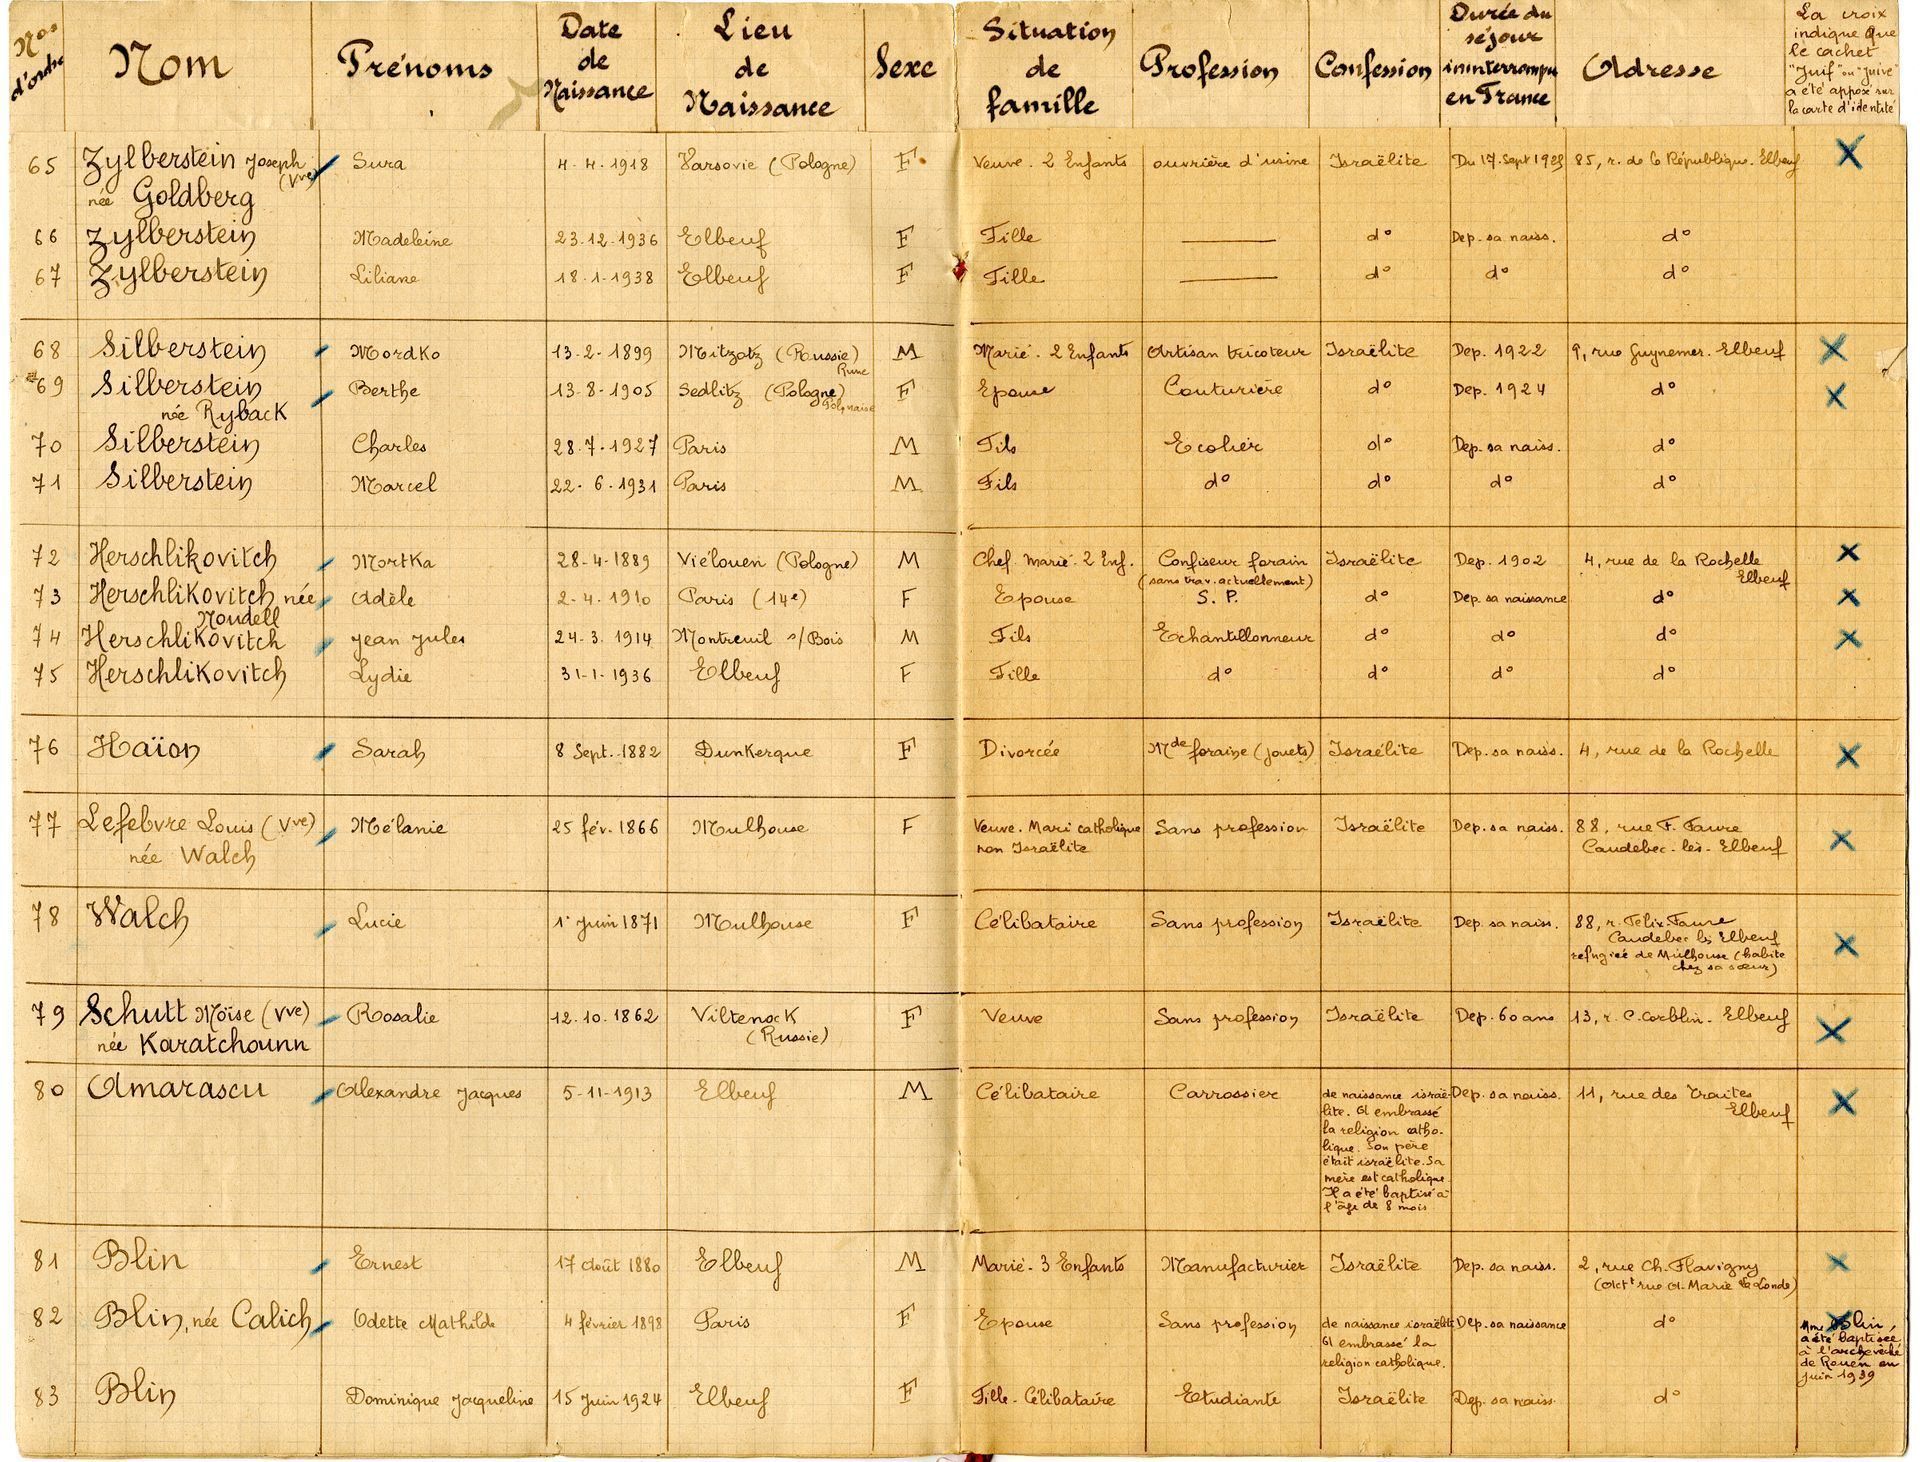 Nos d'ordre
Nom
Prénoms
Date de Naissance
Lieu de Naissance
Sexe
Situation de famille
Profession
Confession
Durée du séjour ininterrompu en France
Adresse
La croix indique que le cachet "Juif" ou "Juive" a été apposé sur la carte d'identité
65 Zylberstein Joseph (Vve) Sura 4-4-1918 Varsovie (Pologne) F Veuve. 2 Enfants ouvrière d'usine Israëlite Du 17 Sept 85, r. de la République. Elbeuf X
née Goldberg
66 Zylberstein Madeleine 23.12.1936 Elbeuf F Fille — d° Dep. sa naiss. d°
67 Zylberstein Liliane 18-1-1938 Elbeuf F Fille — d° d° d°
68 Silberstein Mordko 13-2-1899 (Russie) M Marié. 2 Enfants Artisan tricoteur Israëlite Dep. 1922 9, rue Guynemer. Elbeuf X
69 Silberstein Berthe 13-8-1905 Sedlitz (Pologne) F Epouse Couturière d° Dep. 1924 d° X
Polonaise
née Ryback
70 Silberstein Charles 28.7.1927 Paris M Fils Ecolier d° Dep. sa naiss. d°
71 Silberstein Marcel 22-6-1931 Paris M Fils d° d° d° d°
72 Herschlikovitch Mortka 28-4-1889 Viélouen (Pologne) M Chef. marié. 2 Enf. Confiseur forain Israëlite Dep. 1902 4, rue de la Rochelle X
(sans trav. actuellement) Elbeuf
73 Herschlikovitch née Adèle 2-4-1910 Paris (14e) F Epouse S. P. d° Dep. sa naissance d° X
Moudell
74 Herschlikovitch Jean Jules 24-3-1914 Montreuil s/Bois M Fils Echantillonneur d° d° d° X
75 Herschlikovitch Lydie 31-1-1936 Elbeuf F Fille d° d° d° d°
76 Haïon Sarah 8 Sept. 1882 Dunkerque F Divorcée Mde foraine (jouets) Israélite Dep. sa naiss. 4, rue de la Rochelle X
77 Lefebvre Louis (Vve) Mélanie 25 fév. 1866 Mulhouse F Veuve. Mari catholique Sans profession Israëlite Dep. sa naiss. 88, rue F. Faure X
née Walch non Israëlite Caudebec-lès-Elbeuf
78 Walch Lucie 1er Juin 1871 Mulhouse F Célibataire Sans profession Israëlite Dep. sa naiss. 88, r. Félix-Faure X
Caudebec ls Elbeuf
réfugiée de Mulhouse (habite
chez sa sœur)
79 Schutt Moïse (Vve) Rosalie 12.10.1862 Viltenock F Veuve Sans profession Israëlite Dep. 60 ans 13, r. C. Corblin. Elbeuf X
née Karatchounn (Russie)
80 Amarascu Alexandre Jacques 5-11-1913 Elbeuf M Célibataire Carrossier de naissance israë- Dep. sa naiss. 11, rue des Traites X
lite. A embrassé Elbeuf
la religion catho-
lique. Son père
était israëlite. Sa
mère est catholique
Il a été baptisé à
l'âge de 8 mois
81 Blin Ernest 17 Août 1880 Elbeuf M Marié. 3 Enfants Manufacturier Israëlite Dep. sa naiss. 2, rue Ch. Flavigny X
(Actt rue A. Marie La Londe)
82 Blin, née Calich Odette Mathilde 4 février 1898 Paris F Epouse Sans profession de naissance israëlite Dep. sa naissance d° X
A embrassé la
religion catholique.
Mme Blin,
a été baptisée
à l'archevêché
de Rouen en
juin 1939
83 Blin Dominique Jacqueline 15 Juin 1924 Elbeuf F Fille. Célibataire Etudiante Israëlite Dep. sa naiss. d°